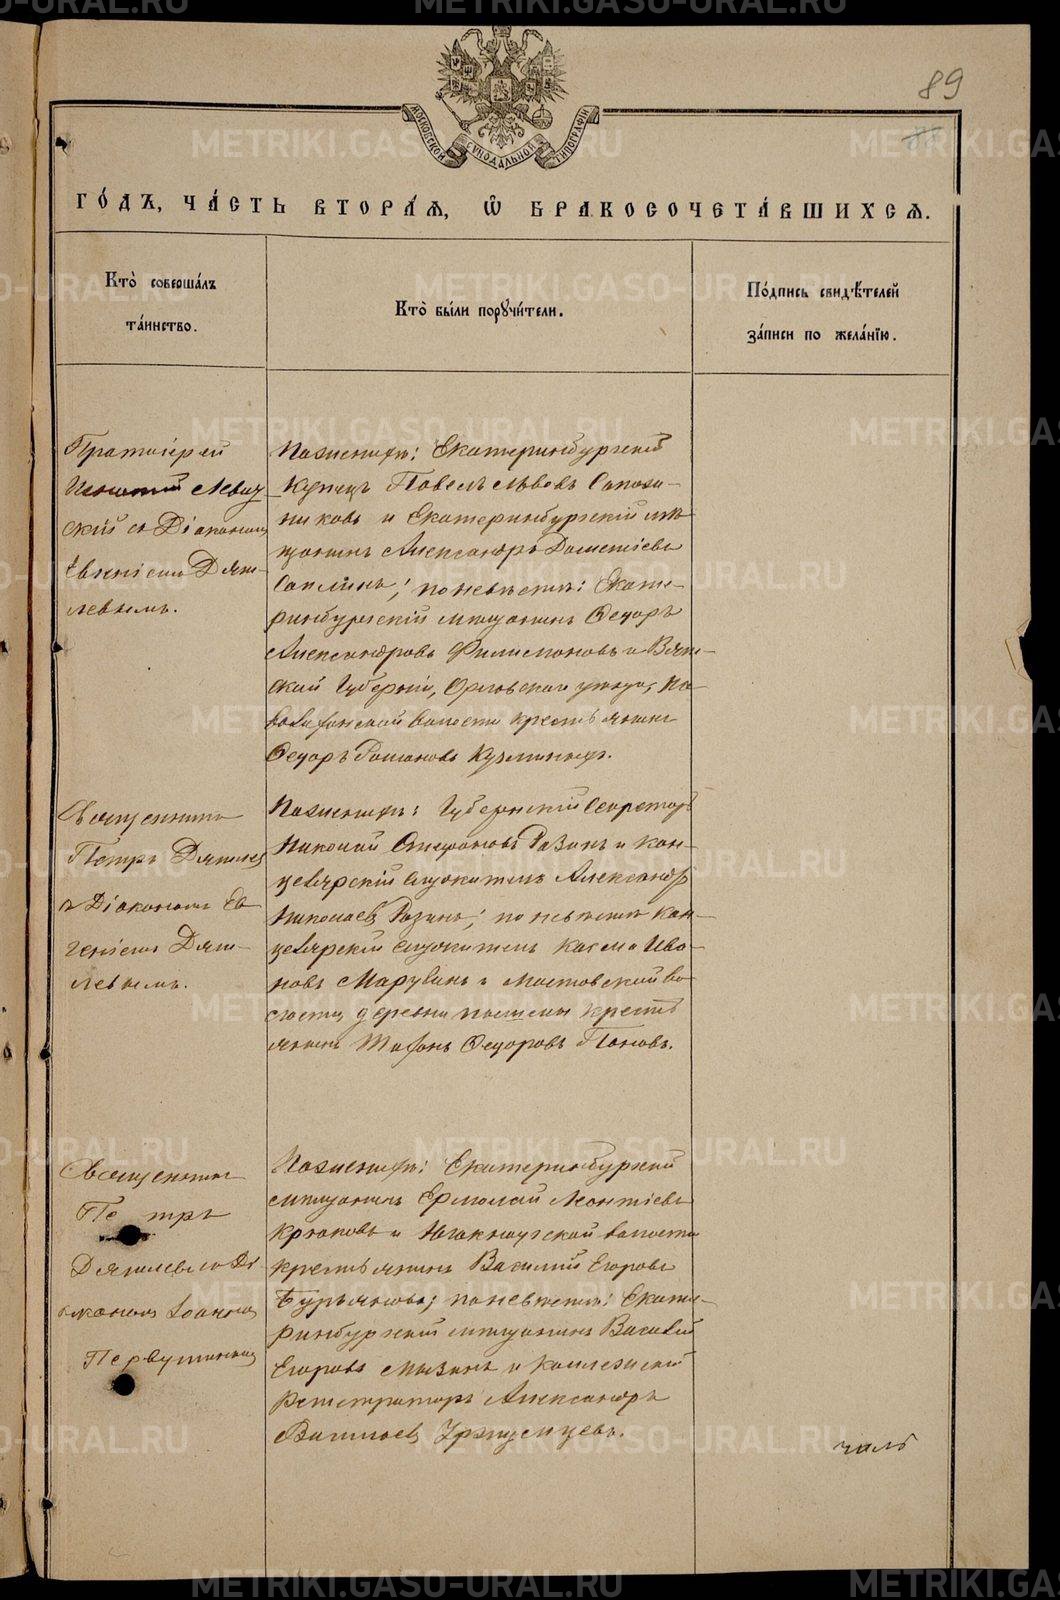 89
МОСКОВСКОЙ СѴНОДАЛЬНОЙ ТИПОГРАФІИ
ГО́ДЪ, ЧА́СТЬ ВТОРА́Ѧ, Ѽ БРАКОСОЧЕТА́ВШИХСѦ.
Кто̀ соверша́лъ
та́инство.
Кто̀ бы́ли порꙋчи́тели.
По́дпись свидѣ́телей
за́писи по жела́нїю.
Протоіерей
Игнатій Левиц
скій съ Діакономъ
Евгеніемъ Дяги-
левымъ.
По женихѣ: Екатеринбургскій
купецъ Павелъ Львовъ Сапож-
никовъ и Екатеринбургскій мѣ
щанинъ Александръ Дометіевъ
по невѣстѣ: Екате-
ринбургскій мѣщанинъ Ѳедоръ
Александровъ Филимоновъ и Вят-
ской Губерніи, Орловскаго уѣзда,
волости крестьянинъ
Ѳедоръ Романовъ Кузминыхъ.
Священникъ
Петръ Дягилев
съ Діакономъ Ев
геніемъ Дяги-
левымъ.
По женихѣ: Губернскій Секретарь
Николай Стефановъ и Кан-
целярскій служитель Александръ
Николаевъ по невѣстѣ Кан-
целярскій служитель Косма Ива-
новъ и Мостовской во
лости, деревни крестья
янинъ Ѳедоровъ Пановъ.
Священникъ
Петръ
Дягилевъ съ Ді
акономъ Іоанномъ
Первушинымъ
По женихѣ: Екатеринбургскій
мѣщанинъ Ермолай Леонтіевъ
Крюковъ и волости
крестьянинъ Василій Егоровъ
по невѣстѣ: Екате-
ринбургскій мѣщанинъ Василій
Егоровъ и Коллежскій
Регистраторъ Александръ
METRIKI.GASO-URAL.RU